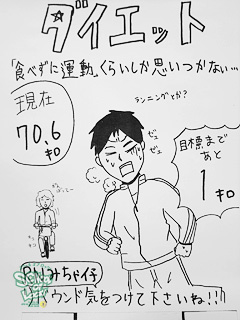 ダイエット
「食べずに運動」くらいしか思いつかない…
現在
70.6
キロ
ランニングとか?
ゼェ
ゼェ
目標まで
あと
1キロ
RNみちゃイチ
リバウンド気をつけて下さいね!!